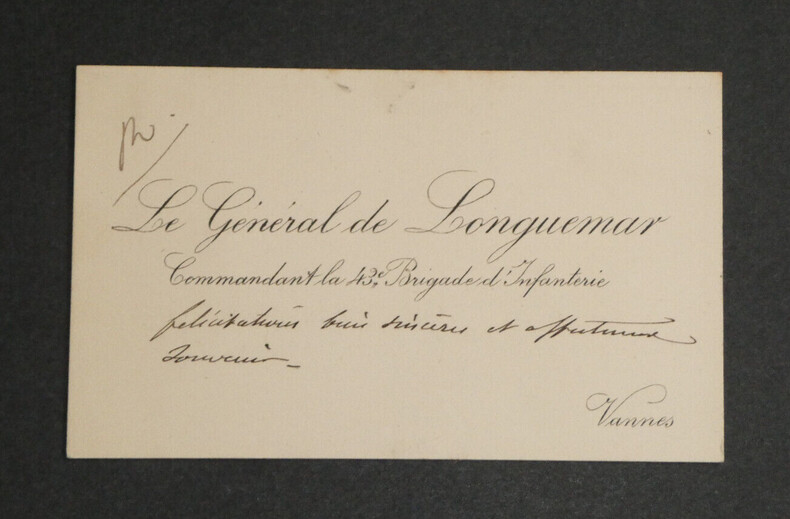 Le Général de Longuemar
Commandant la 43e Brigade d'Infanterie
félicitations bien sincères et affectueux
souvenir
Vannes